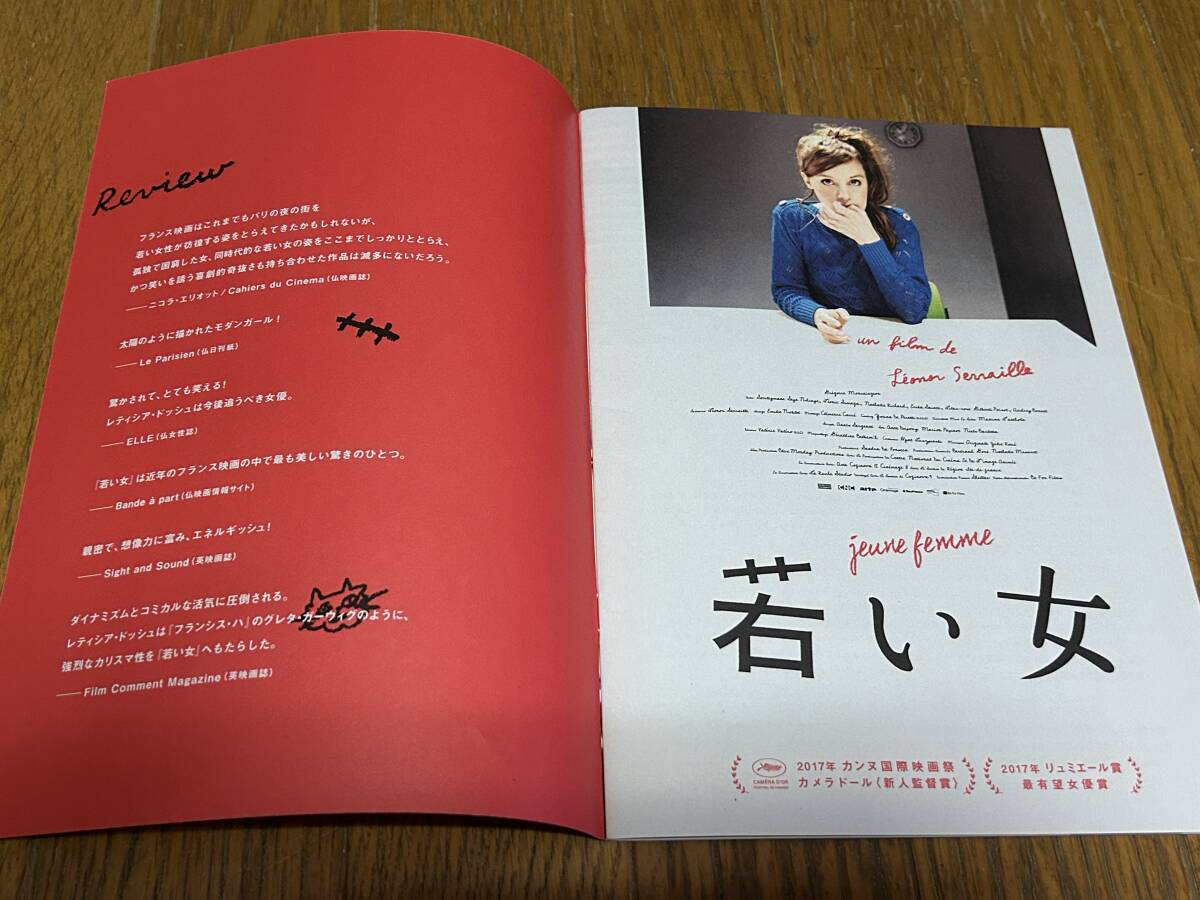 Review
フランス映画はこれまでもパリの夜の街を
若い女性が彷徨する姿をとらえてきたかもしれないが、
孤独で困窮した女、同時代的な若い女の姿をここまでしっかりととらえ、
かつ笑いを誘う喜劇的奇抜さも持ち合わせた作品は滅多にないだろう。
——ニコラ・エリオット/Cahiers du Cinema(仏映画誌)
太陽のように描かれたモダンガール!
——Le Parisien(仏日刊紙)
驚かされて、とても笑える!
レティシア・ドッシュは今後追うべき女優。
——ELLE(仏女性誌)
『若い女』は近年のフランス映画の中で最も美しい驚きのひとつ。
——Bande à part(仏映画情報サイト)
親密で、想像力に富み、エネルギッシュ!
——Sight and Sound(英映画誌)
ダイナミズムとコミカルな活気に圧倒される。
レティシア・ドッシュは『フランシス・ハ』のグレタ・ガーウィグのように、
強烈なカリスマ性を『若い女』へもたらした。
——Film Comment Magazine(英映画誌)
un film de
Léonor Serraille
jeune femme
若い女
CAMÉRA D'OR
2017年 カンヌ国際映画祭
カメラドール〈新人監督賞〉
2017年 リュミエール賞
最有望女優賞